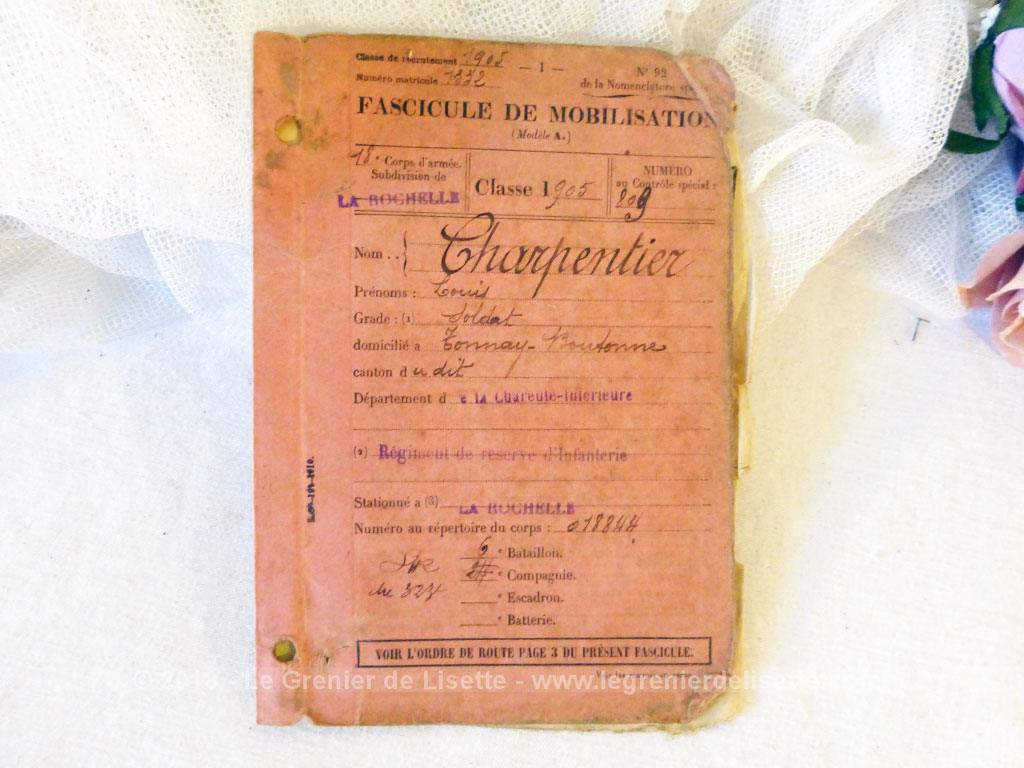 Classe de recrutement 1905
Numéro matricule 1832
— 1 —
N° 92
de la Nomenclature
FASCICULE DE MOBILISATION
(Modèle A.)
18e Corps d'armée.
Subdivision de
LA ROCHELLE
Classe 1905
NUMÉRO
au Contrôle spécial :
209
Nom . . Charpentier
Prénoms : Louis
Grade : (1) Soldat
domicilié à Tonnay-Boutonne
canton du dit
Département de la Charente-Inférieure
(2) Régiment de réserve d'Infanterie
Stationné à (3) LA ROCHELLE
Numéro au répertoire du corps : 018844
6e Bataillon.
e Compagnie.
e Escadron.
e Batterie.
VOIR L'ORDRE DE ROUTE PAGE 3 DU PRÉSENT FASCICULE.
Le Grenier de Lisette - www.legrenierdelisette